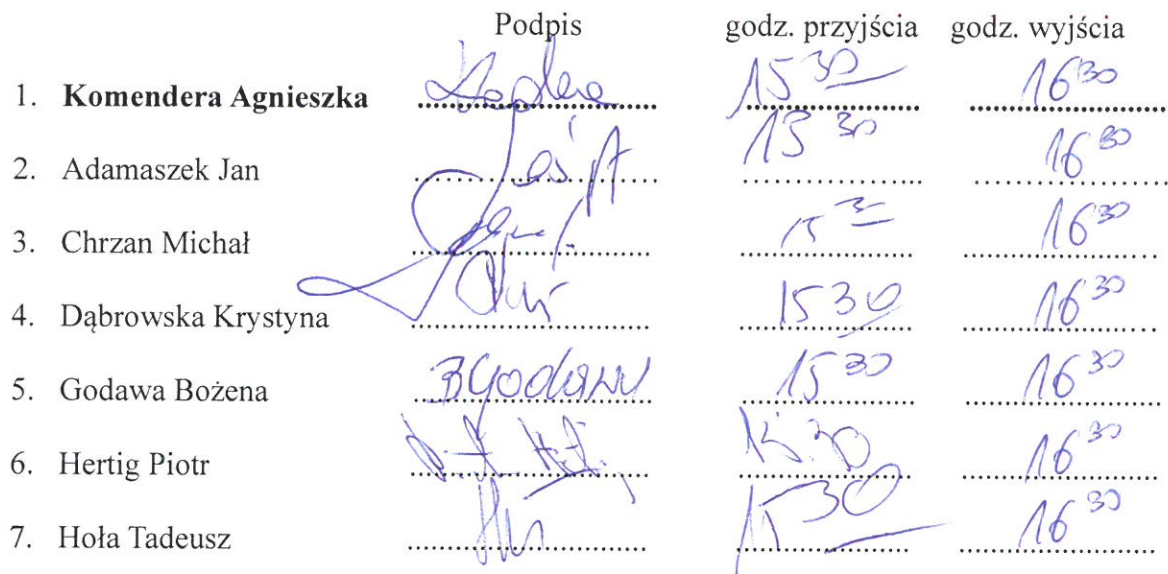 Podpis godz. przyjścia godz. wyjścia
1. Komendera Agnieszka 15 30 16 30
2. Adamaszek Jan 16 30
3. Chrzan Michał 15 16 30
4. Dąbrowska Krystyna 15 30 16 30
5. Godawa Bożena BGodawa 15 30 16 30
6. Hertig Piotr 16 30
7. Hoła Tadeusz 15 30 16 30